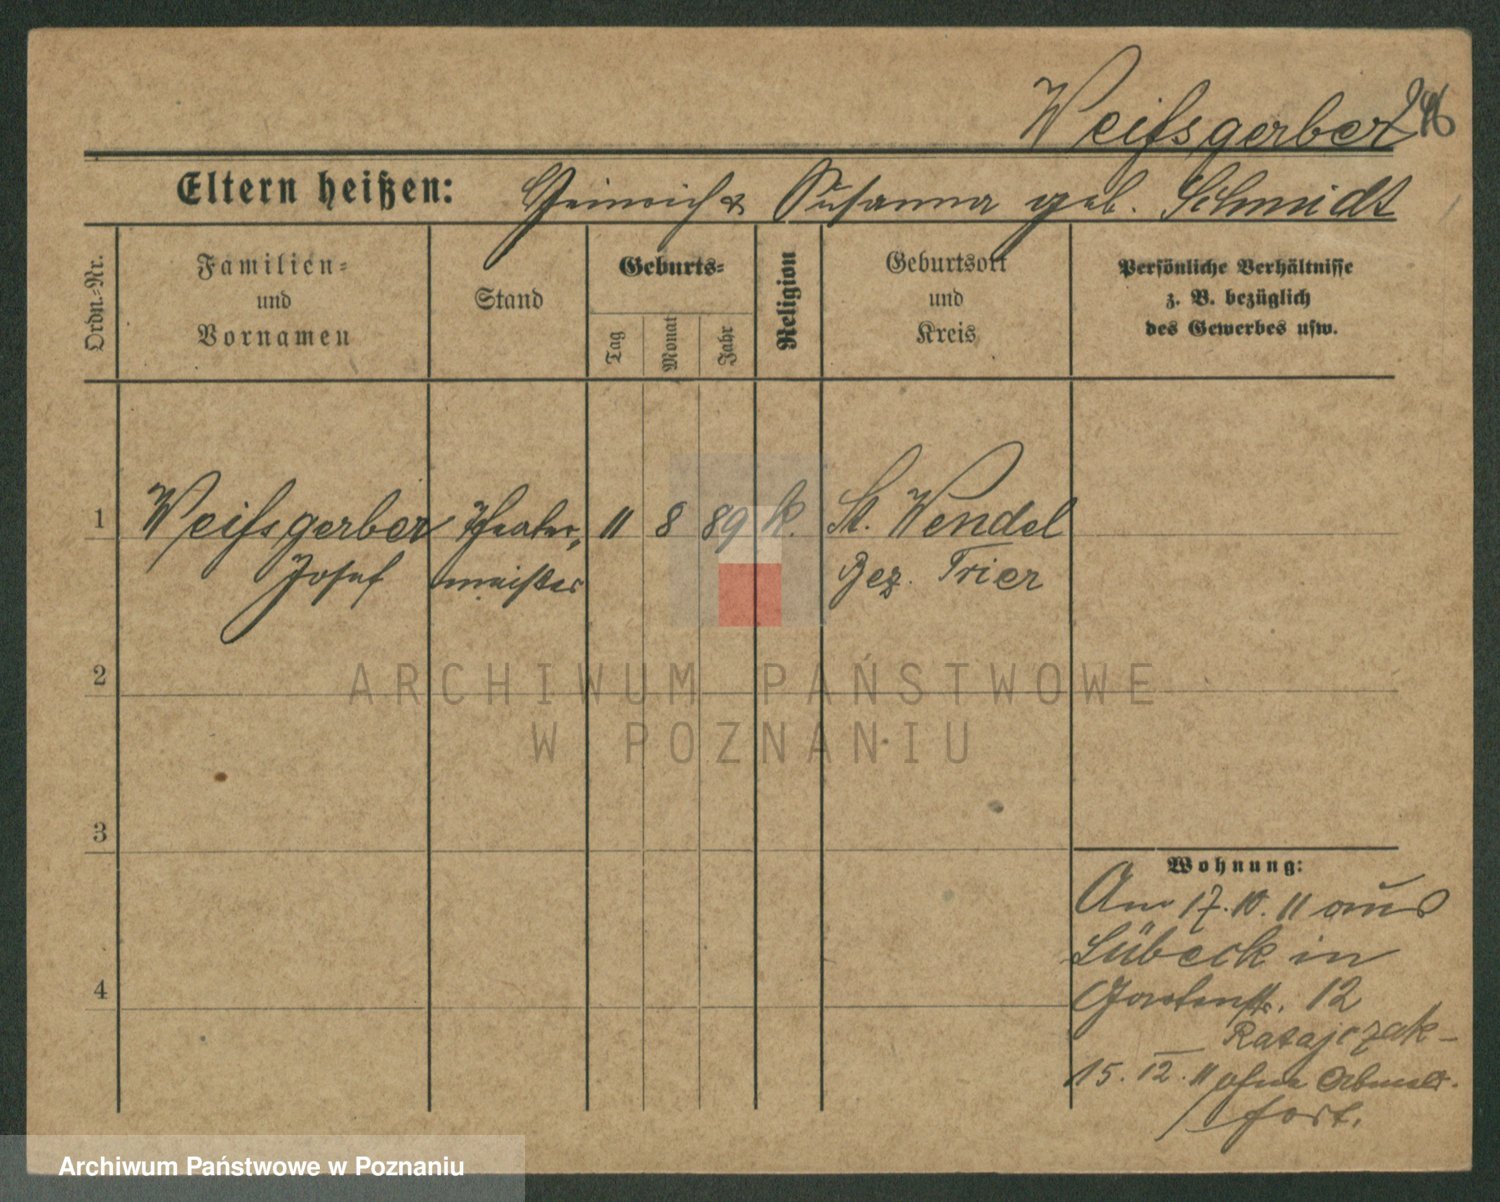 Weifsgerber 246
Eltern heißen: Heinrich & Susanna geb. Schmidt
Ordn.-Nr.
Familien-
und
Vornamen
Stand
Geburts-
Tag
Monat
Jahr
Religion
Geburtsort
und
Kreis
Persönliche Verhältnisse
z. B. bezüglich
des Gewerbes usw.
1 Weifsgerber Theater- 11 8 89 k. St. Wendel
Josef meister Bez. Trier
2
3
4
Wohnung:
Am 17.10.11 aus
Lübeck in
Gartenstr. 12
Ratajczak-
15. 12. 11 ohne Abmeld.
fort.
ARCHIWUM PAŃSTWOWE
W POZNANIU
Archiwum Państwowe w Poznaniu